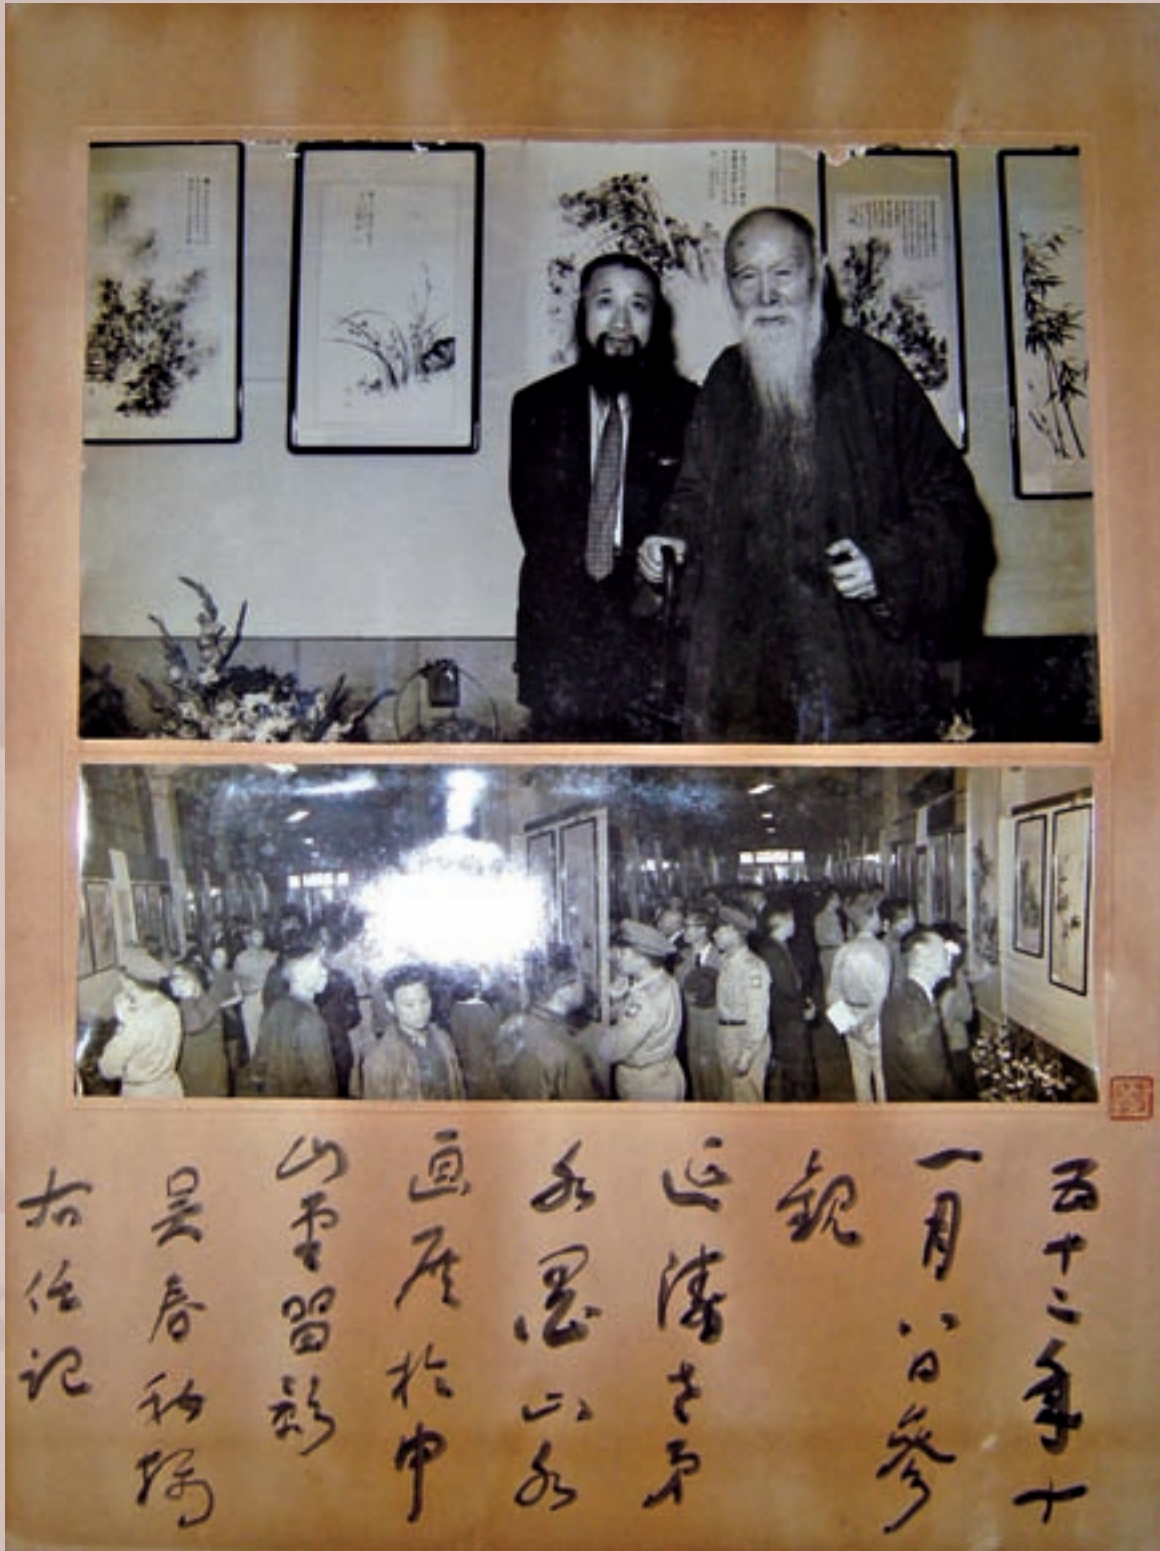 五十二年十
一月八日參
觀
延濤老弟
水墨山水
画展於中
山堂留影
吴春
右任記